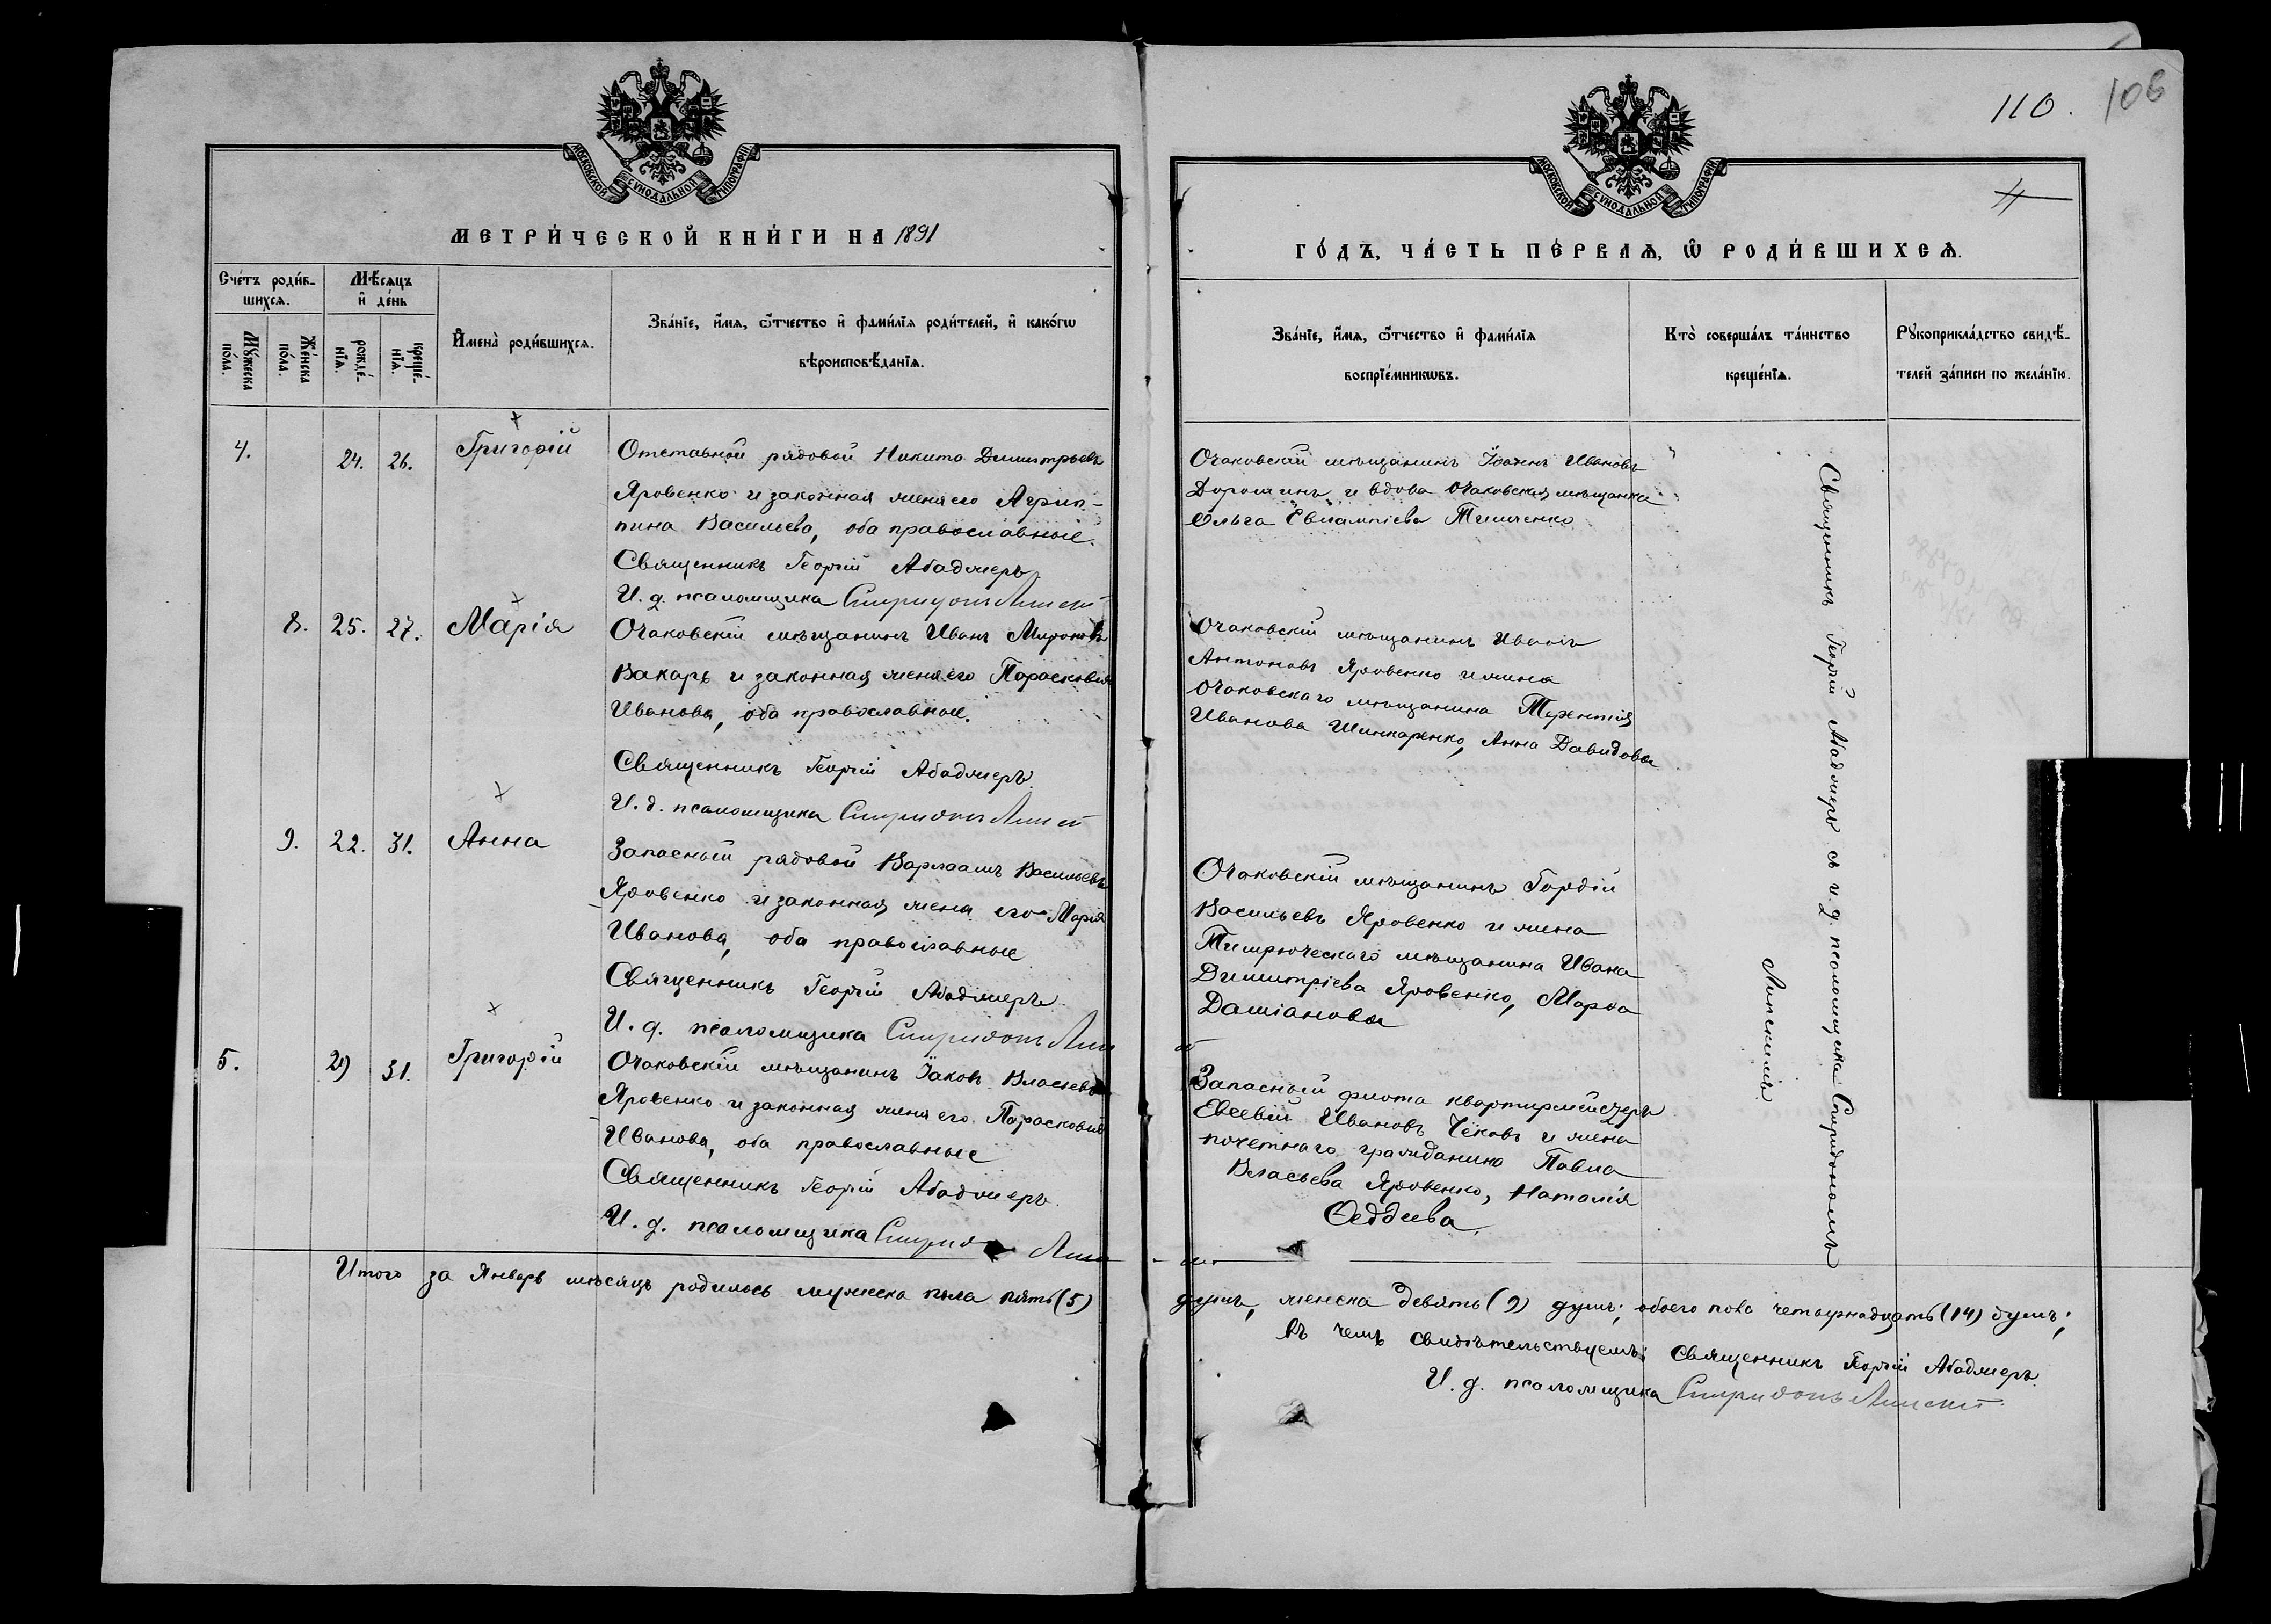 110. 106
МОСКОВСКОЙ СѴНОДАЛЬНОЙ ТИПОГРАФІИ
МОСКОВСКОЙ СѴНОДАЛЬНОЙ ТИПОГРАФІИ
МЕТРИ́ЧЕСКОЙ КНИ́ГИ НА 1891
ГО́ДЪ, ЧА́СТЬ ПЕ́РВАѦ, Ѽ РОДИ́ВШИХСѦ.
Сче́тъ роди́в-
шихсѧ.
Мꙋ́жеска
по́ла.
Же́нска
по́ла.
Мѣ́сѧцъ
и҆ де́нь
рожде́-
нїѧ.
креще́-
нїѧ.
И҆мена̀ роди́вшихсѧ.
Зва́нїе, и҆́мѧ, ѻ҆́тчество и҆ фами́лїѧ роди́телей, и҆ како́гѡ
вѣроисповѣ́данїѧ.
Зва́нїе, и҆́мѧ, ѻ҆́тчество и҆ фами́лїѧ
воспрїе́мникѡвъ.
Кто̀ соверша́лъ та́инство
креще́нїѧ.
Рꙋкоприкла́дство свидѣ́-
телей за́писи по жела́нїю.
4. 24. 26. Григорій
Отставной рядовой Никита Димитрьевъ
Яровенко и законная жена его Агрип-
пина Васильева, оба православные.
Священникъ Георгій Абаджеръ
И. д. псаломщика Спиридонъ Липскій
Очаковскій мѣщанинъ Іоаннъ Ивановъ
Дорошинъ и вдова Очаковская мѣщанка
Ольга Евлампіева Тимченко
8. 25. 27. Марія
Очаковскій мѣщанинъ Иванъ Мироновъ
Вакарь и законная жена его Параскевія
Иванова, оба православные.
Священникъ Георгій Абаджеръ.
И. д. псаломщика Спиридонъ Липскій
Очаковскій мѣщанинъ Иванъ
Антоновъ Яровенко и жена
Очаковскаго мѣщанина Терентія
Иванова Шинкаренко, Анна Давидова
9. 22. 31. Анна
Запасный рядовой Варлаамъ Васильевъ
Яровенко и законная жена его Марія
Иванова, оба православные
Священникъ Георгій Абаджеръ.
И. д. псаломщика Спиридонъ Липскій
Очаковскій мѣщанинъ Гордій
Васильевъ Яровенко и жена
Темрюческаго мѣщанина Ивана
Димитріева Яровенко, Марѳа
Даміанова
5. 29 31. Григорій
Очаковскій мѣщанинъ Іаковъ Власіевъ
Яровенко и законная жена его Параскевія
Иванова, оба православные
Священникъ Георгій Абаджеръ.
И. д. псаломщика Спиридонъ Липскій
Запасный флота квартирмейстеръ
Евсевій Ивановъ Чековъ и жена
почетнаго гражданина Павла
Власьева Яровенко, Наталія
Ѳаддеева.
Священникъ Георгій Абаджеръ съ и. д. псаломщика Спиридономъ
Липскимъ
Итого за Январь мѣсяцъ родилось мужеска пола пять (5)
душъ, женска девять (9) душъ; обоего пола четырнадцать (14) душъ;
въ чемъ свидѣтельствуемъ: Священникъ Георгій Абаджеръ.
И. д. псаломщика Спиридонъ Липскій